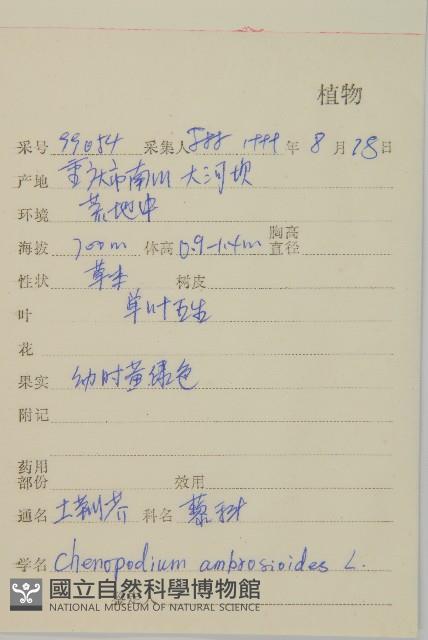 植物
采号 99054 采集人 1999 年 8 月 28 日
产地 重庆市南山大河坝
环境 荒地中
海拔 700m 体高 0.9-1.4m 胸高直径
性状 草本 树皮
叶 单叶互生
花
果实 幼时黄绿色
附记
药用部份 效用
通名 土荆芥 科名 藜科
学名 Chenopodium ambrosioides L.
國立自然科學博物館
NATIONAL MUSEUM OF NATURAL SCIENCE